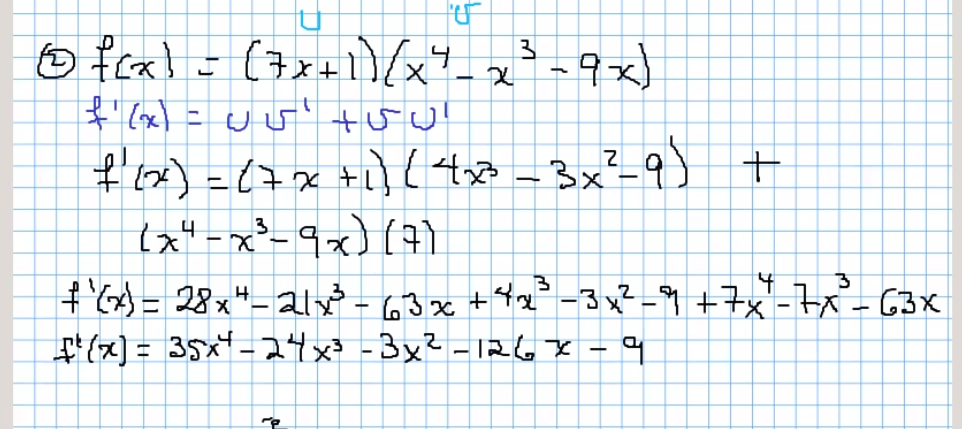 u v
② f(x) = (7x+1)(x⁴ - x³ - 9x)
f'(x) = u v' + v u'
f'(x) = (7x +1)(4x³ - 3x² - 9) +
(x⁴ - x³ - 9x)(7)
f'(x) = 28x⁴ - 21x³ - 63x + 4x³ - 3x² - 9 + 7x⁴ - 7x³ - 63x
f'(x] = 35x⁴ - 24x³ - 3x² - 126x - 9